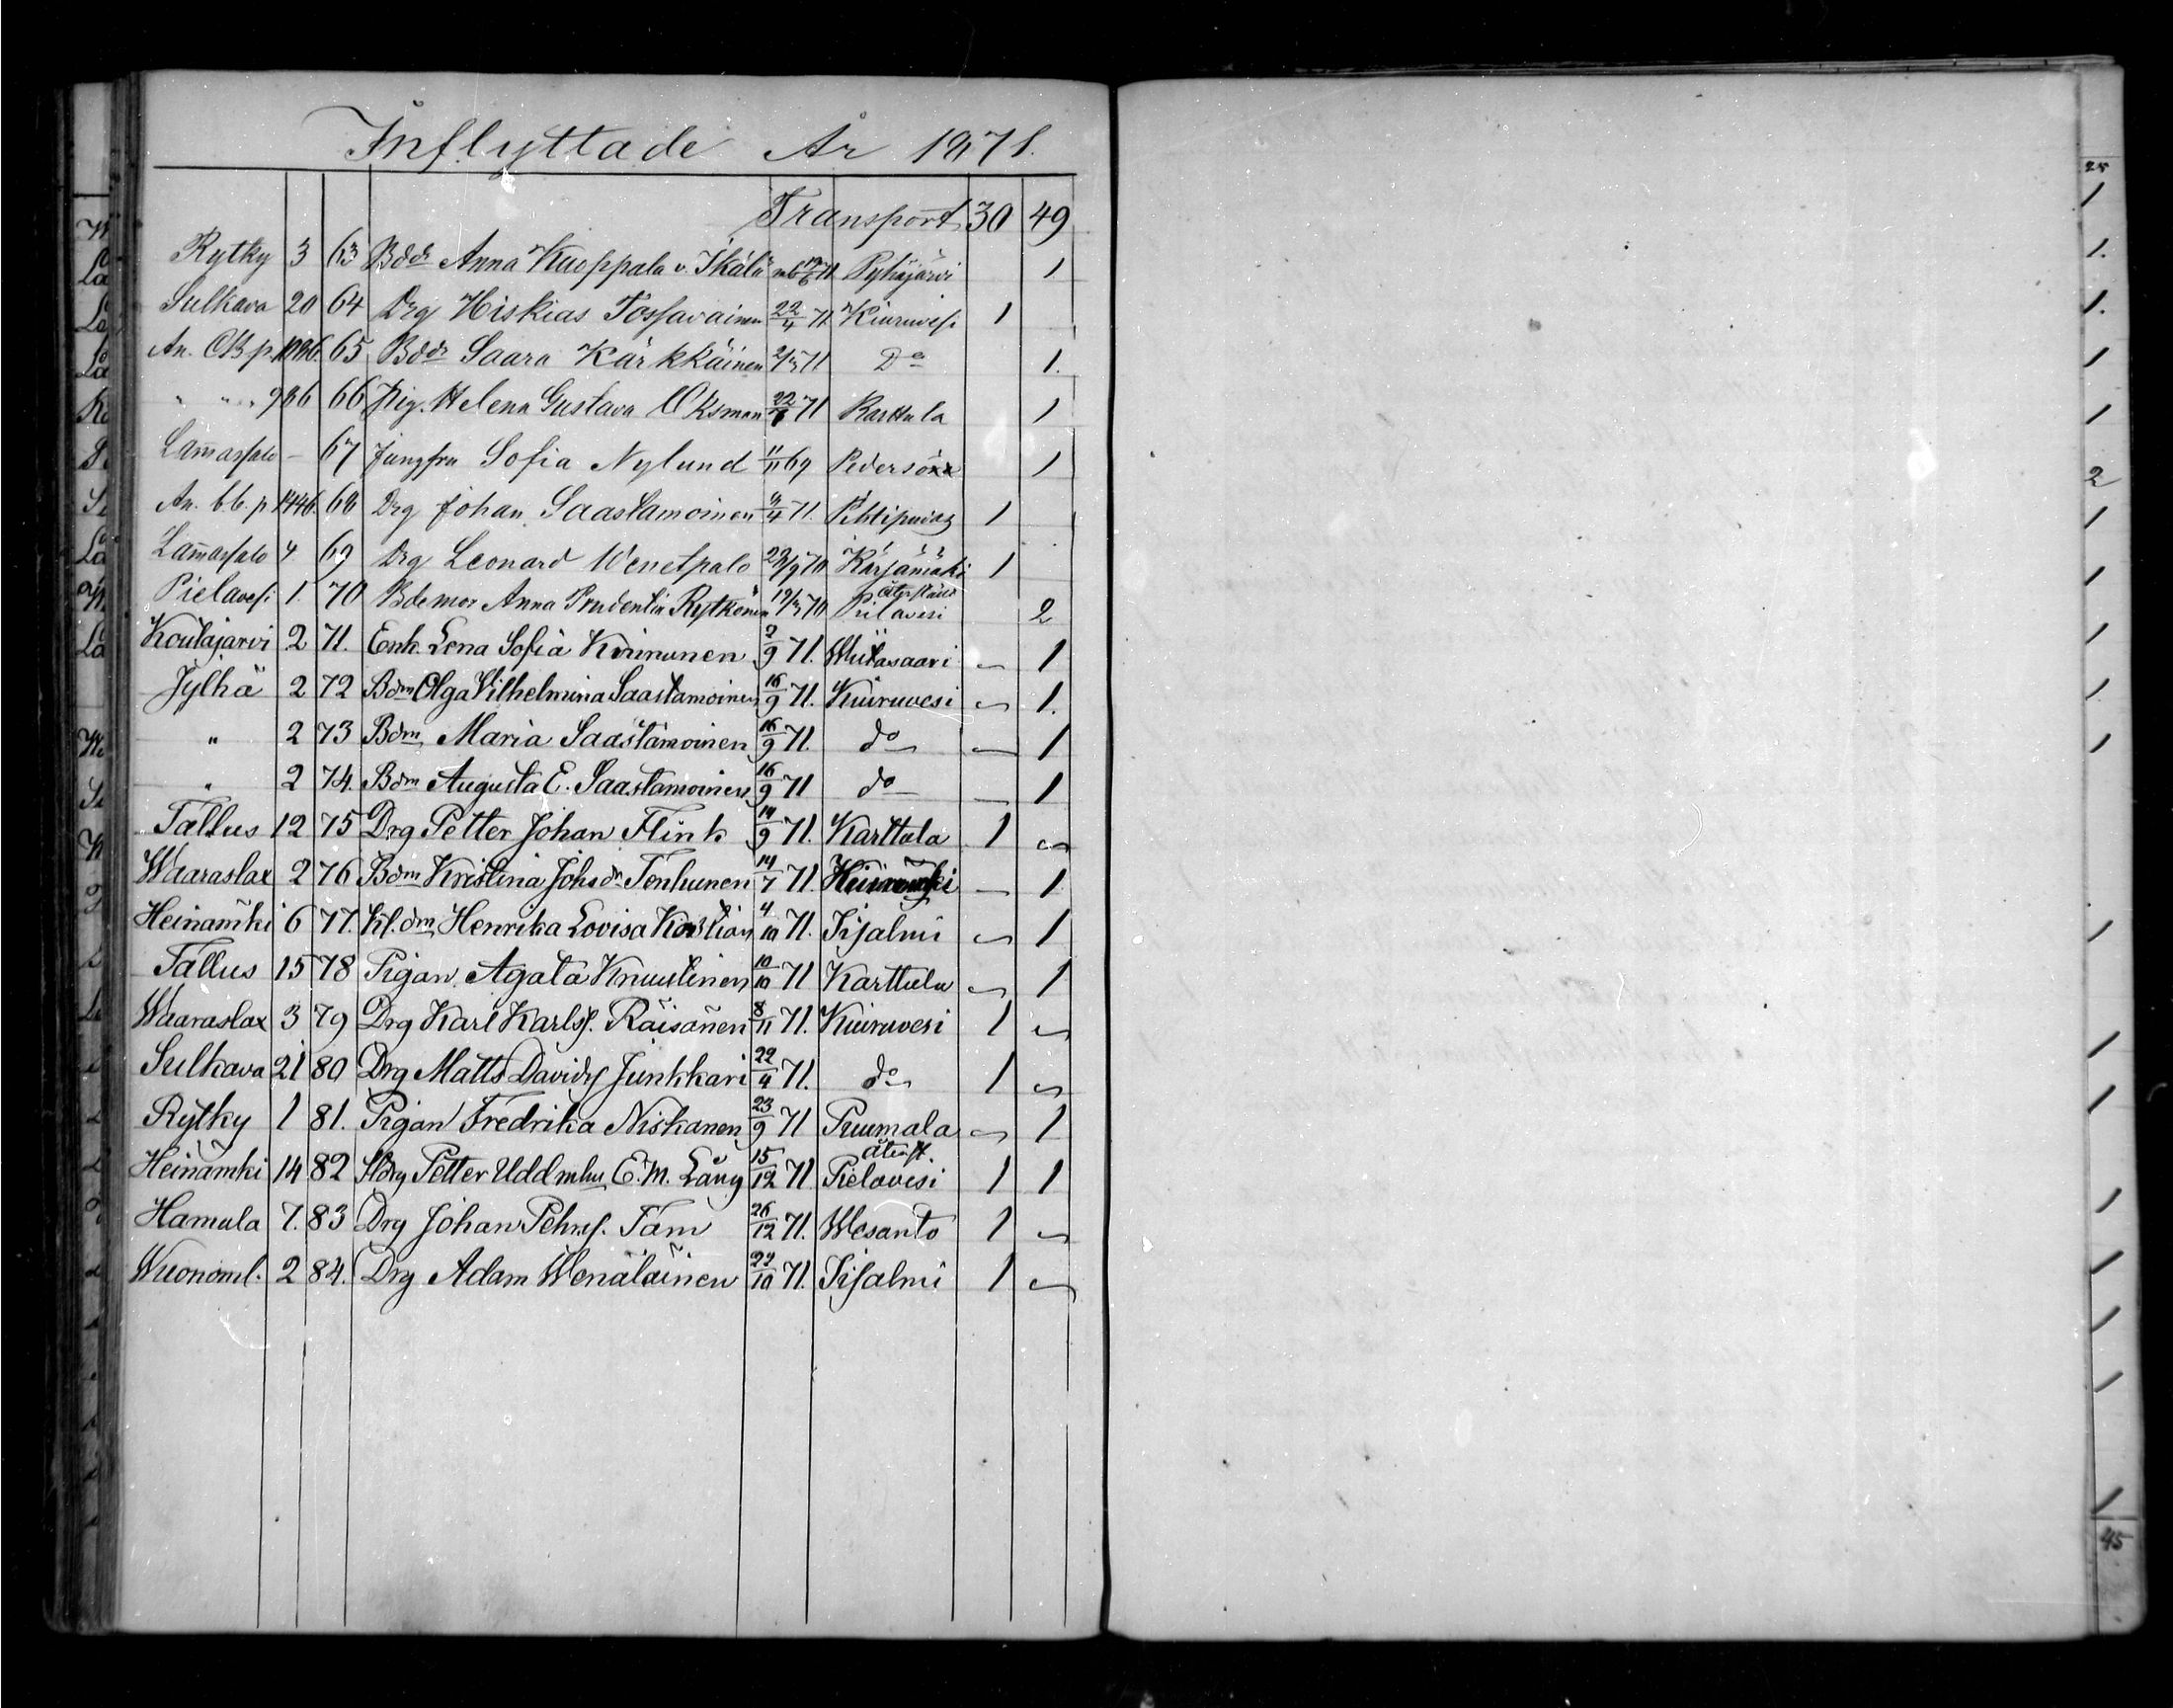 Inflyttade År 1871.
Transport 30 49
Rytky 3 63 Bdr Anna Kuoppala v. Ikälä 71 Pyhäjärvi 1
Sulkava 20 64 Drg Hiskias Tossavainen 22/4 71 Kiuruvesi 1
An. CB p. 1086. 65 Bdr Saara Kärkkäinen 71 Do 1.
" " " 966 66 Pig. Helena Gustava Oksman 22/7 71 Karttula 1
Lam̄assalo – 67 Jungfru Sofia Nylund 11/11 69 Pedersöre 1
An. bb. p 1446. 68 Drg Johan Saastamoinen 9/4 71. Pihtipudas 1
Lam̄assalo 4. 69 Drg Leonard Wenetpalo 23/9 70 Kärsämäki 1
Pielavesi 1. 70 Bdemor Anna Prudentia Rytkönen 70 Pielavesi 2
Koulajärvi 2 71. Enk. Lena Sofia Kinnunen 2/9 71. Wiitasaari – 1
Jylhä 2 72 Bdm Olga Vilhelmina Saastamoinen 16/9 71. Kiuruvesi – 1.
" 2 73 Bdm Maria Saastamoinen 16/9 71. do – 1
" 2 74. Bdm Augusta E. Saastamoinen 16/9 71 do – 1
Tallus 12 75 Drg Petter Johan Flink 14/9 71. Karttula 1 –
Waaraslax 2 76 Bdm Kristina Johsdr Tenhunen 14/7 71. – 1
Heinämki 6 77. Kl. dm Henrika Lovisa Kastian 4/10 71. Iisalmi – 1
Tallus 15 78 Pigan Agata Knuutinen 10/10 71 Karttula – 1
Waaraslax 3 79 Drg Karl Karlss. Räisänen 8/11 71. Kiuruvesi 1 –
Sulkava 21 80 Drg Matts Davidss Junkkari 22/4 71. do 1 –
Rytky 1 81. Pigan Fredrika Niskanen 23/9 71 Puumala – 1
återfl.
Heinämki 14 82 Sldrg Petter Udd mhu E. M. Lång 15/12 71 Pielavesi 1 1
Hamula 7. 83 Drg Johan Pehrss. Tam 26/12 71. Wesanto 1 –
Wuonoml. 2 84. Drg Adam Wenäläinen 71. Iisalmi 1 –